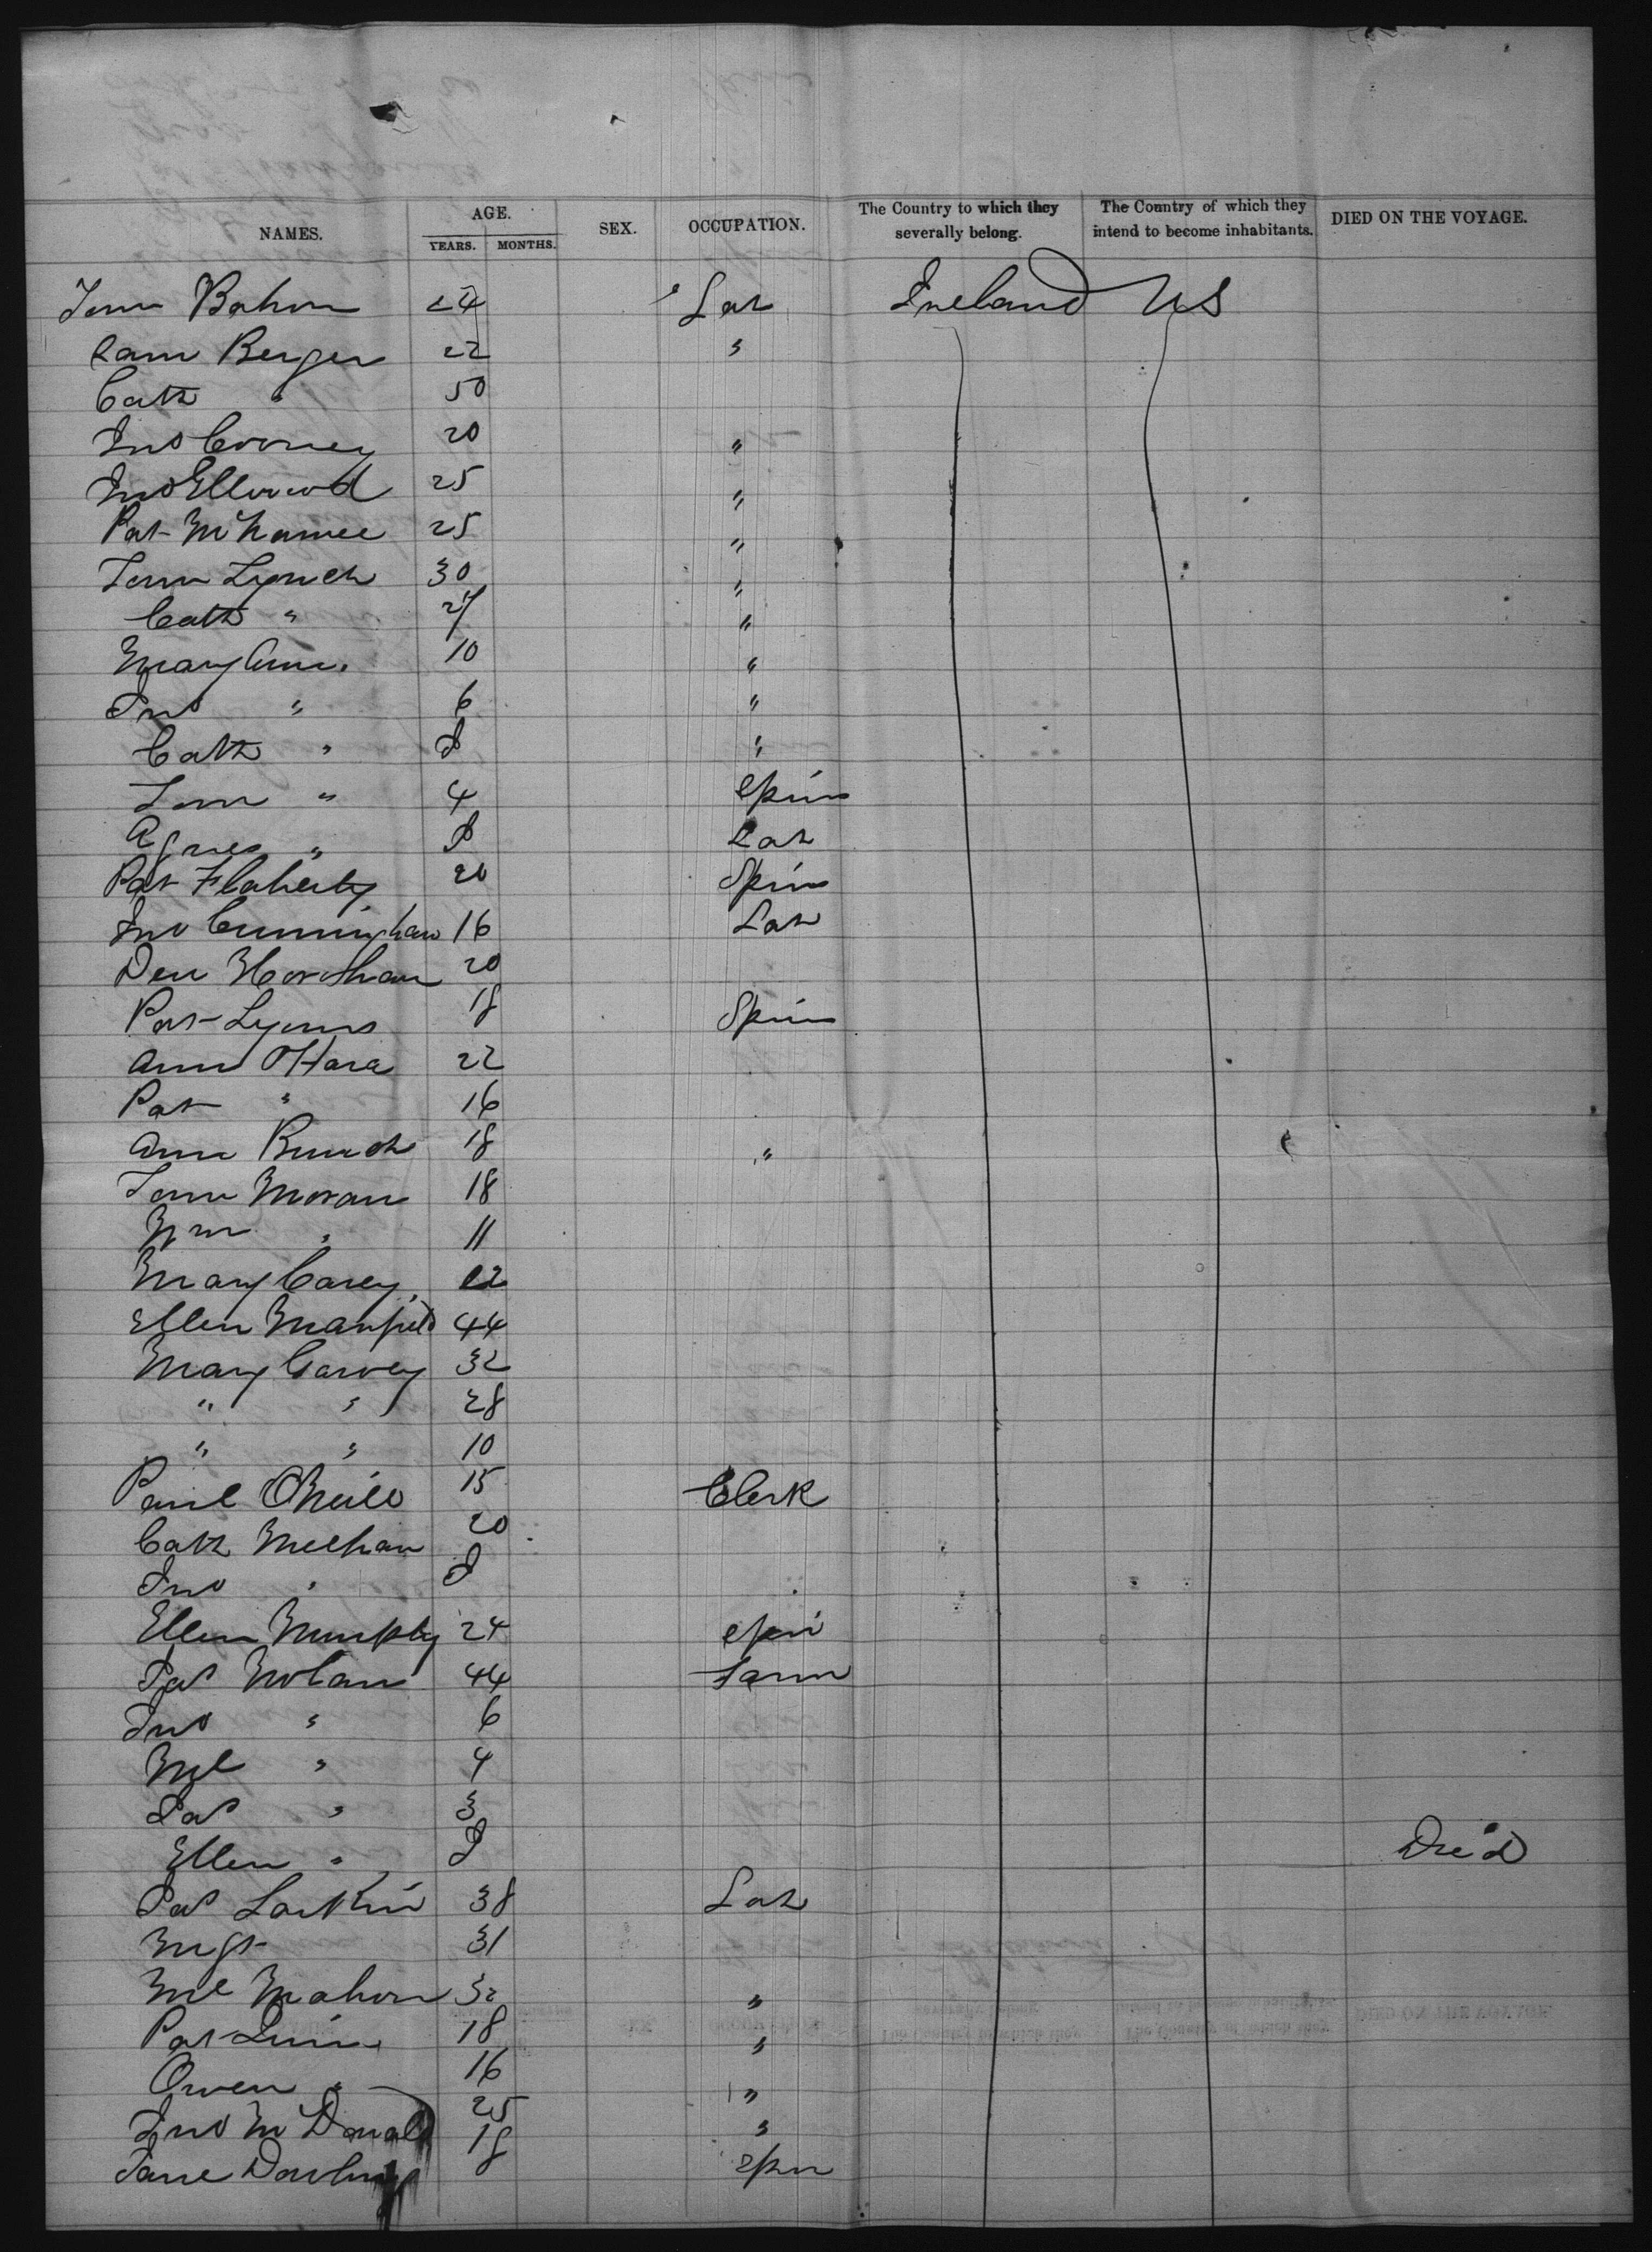 NAMES. AGE. YEARS. MONTHS. SEX. OCCUPATION. The Country to which they severally belong. The Country of which they intend to become inhabitants. DIED ON THE VOYAGE.
Tom Bohan 24 Lab Ireland US
Sam Berger 22 "
Cath " 50
Jno Cooney 20 "
Jno Ellwood 25 "
Pat McNamee 25 "
Tom Lynch 30 "
Cath " 27 "
Mary Ann " 10 "
Jno " 6 "
Cath " "
Tom " 4 Spin
Agnes " Lab
Pat Flaherty 20 Spin
Jno Cunningham 16 Lab
Den Horohan 20
Pat Lyons 18 Spin
Ann O'Hara 22
Pat " 16
Ann 18 "
Tom Moran 18
Wm " 11
Mary Carey 22
Ellen Manfield 44
Mary Carvey 32
" " 28
" " 10
Paul O'Neill 15 Clerk
Cath Meehan 20
Jno "
Ellen Murphy 24 Spin
Pat Nolan 44 Farm
Jno " 6
Ml " 4
Pat " 3
Ellen " Died
Pat Larkin 38 Lab
Mgt 31
Ml Mahon 32 "
Pat Quinn 18 "
Owen " 16 "
Jno McDonald 25 "
Jane Dowling 18 Spin